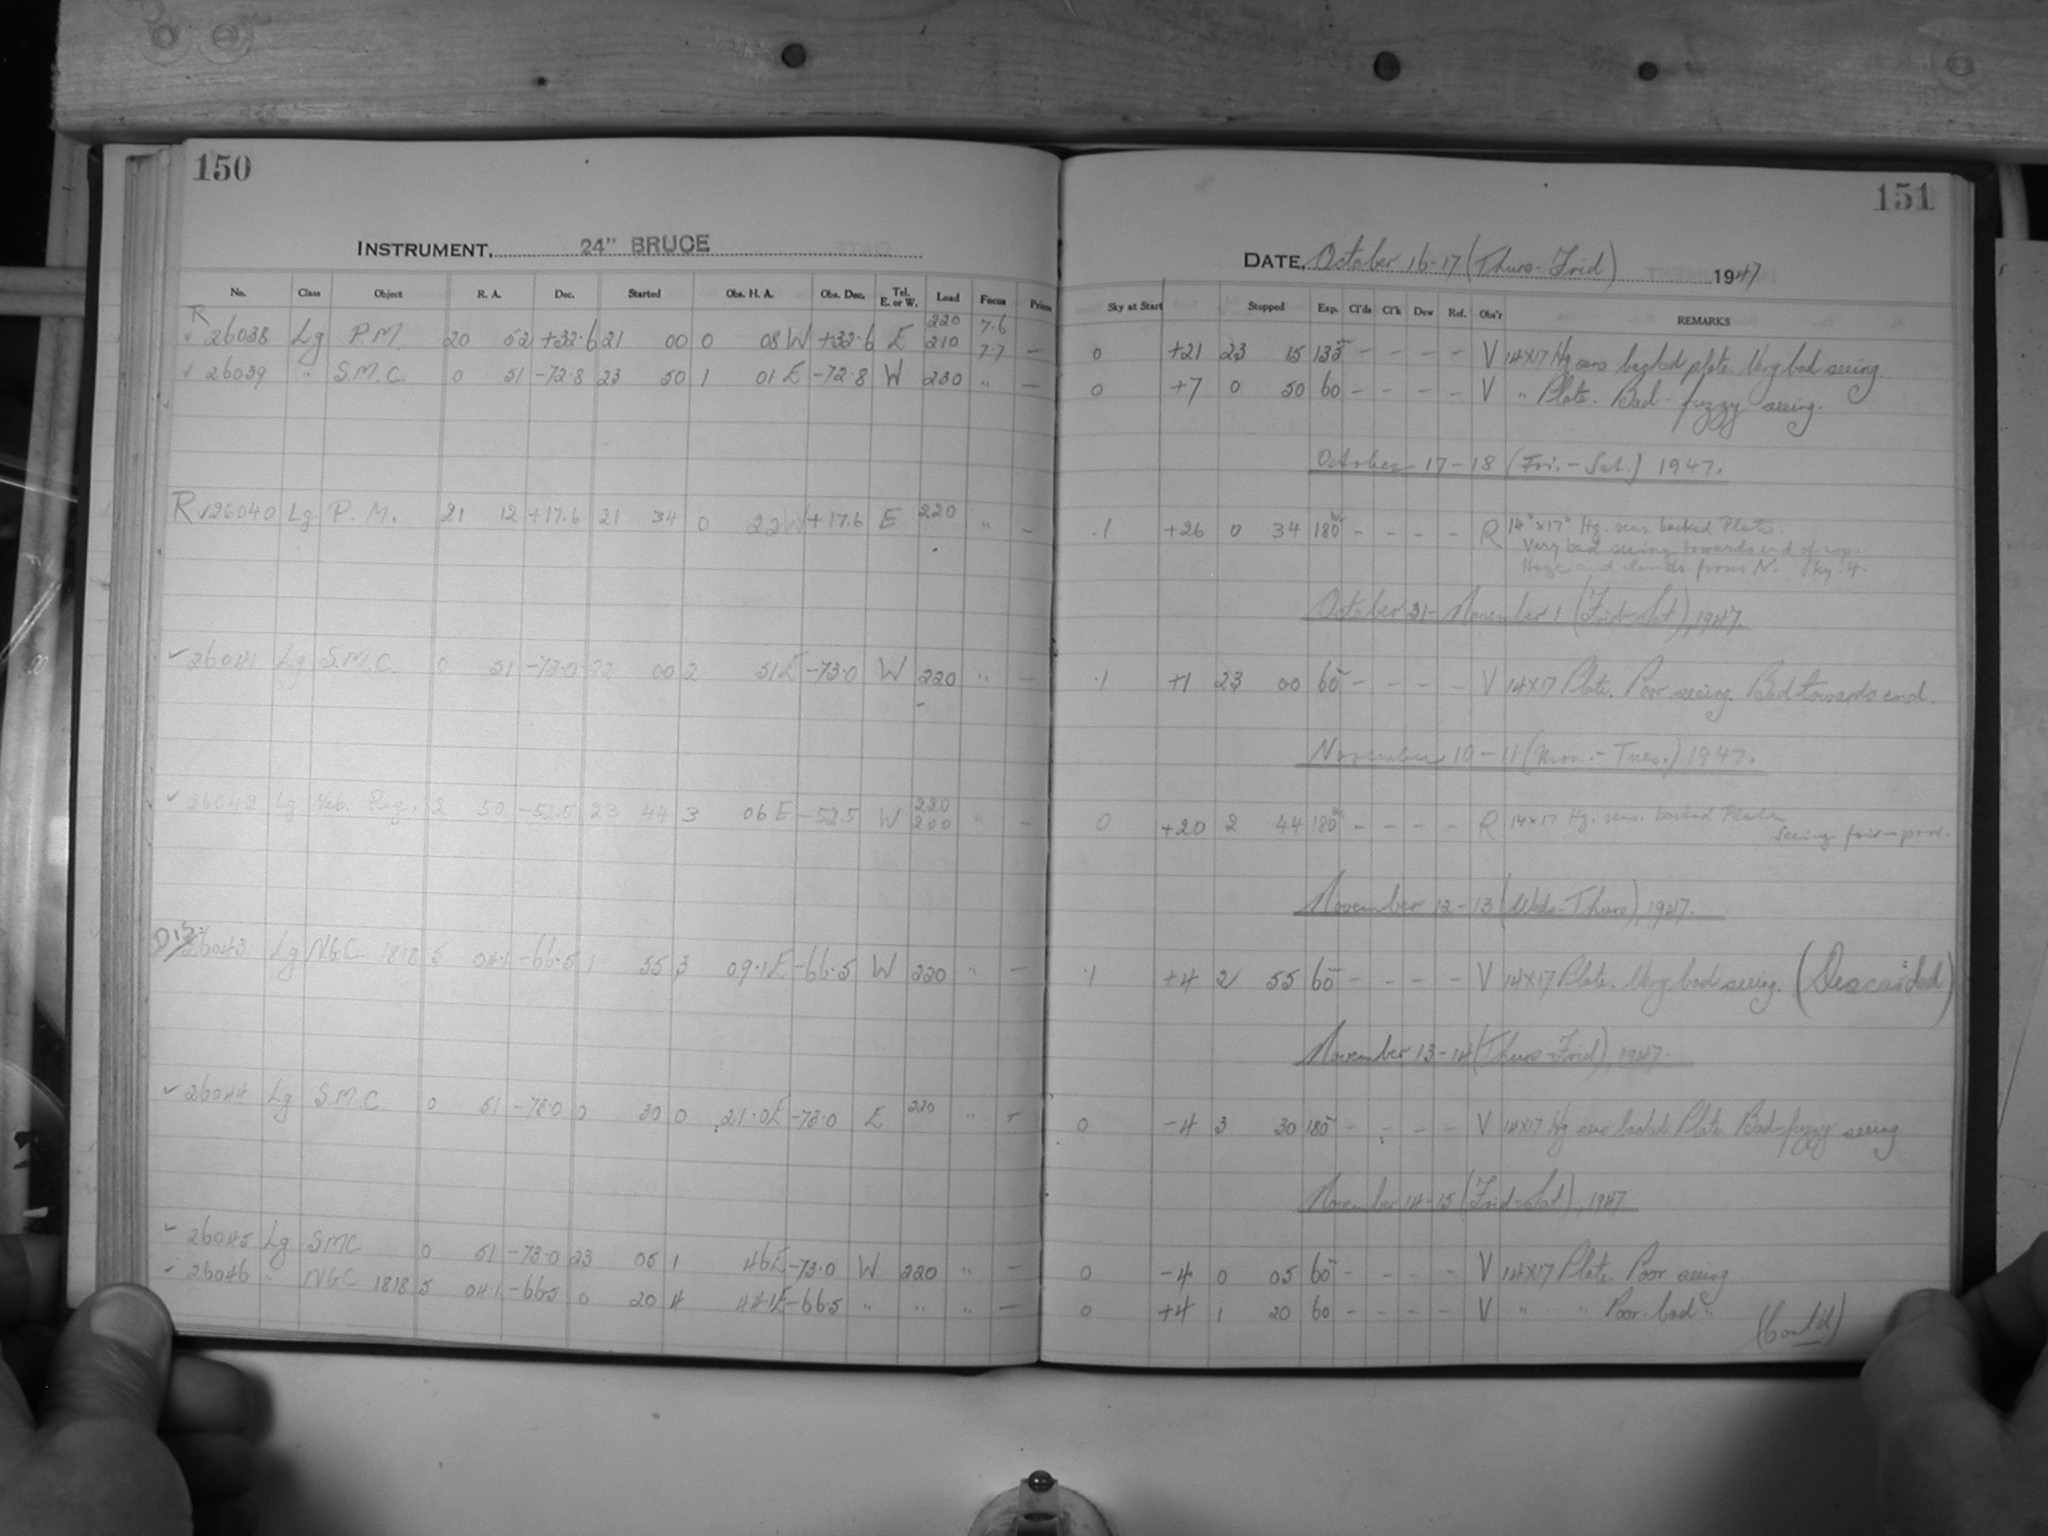 150
INSTRUMENT, 24" BRUCE
No. Class Object R. A. Dec. Started Obs. H. A. Obs. Dec. Tel. E. or W. Load Focus Prism
R 220 7.6
✓ 26038 Lg P.M. 20 52 +32.6 21 00 0 08 W +32.6 E 210 7.7 —
✓ 26039 " S.M.C. 0 51 -72.8 23 50 1 01 E -72.8 W 230 " —
R ✓ 26040 Lg P.M. 21 12 +17.6 21 34 0 22 W +17.6 E 220 " —
✓ 26041 Lg S.M.C. 0 51 -73.0 22 00 2 51 E -73.0 W 220 " —
✓ 26042 Lg Neb. 2 50 -52.5 23 44 3 06 E -52.5 W 220 200 " —
Dis. 26043 Lg NGC 1818 5 04.1 -66.5 1 55 3 09.1 E -66.5 W 220 " —
✓ 26044 Lg S.M.C 0 51 -73.0 0 30 0 21.0 E -73.0 E 220 " —
✓ 26045 Lg SMC 0 51 -73.0 23 05 1 46 E -73.0 W 220 " —
✓ 26046 " NGC 1818 5 04.1 -66.5 0 20 4 44.1 E -66.5 " " " —
151
DATE, October 16-17 (Thurs-Frid) 1947
Sky at Start Stopped Exp. Cl'ds Cl'k Dew Ref. Obs'r REMARKS
0 +21 23 15 135 - - - - V 14x17 Hg sens backed plate. Very bad seeing.
0 +7 0 50 60 - - - - V " Plate. Bad - fuzzy seeing.
October 17-18 (Fri.-Sat.) 1947.
.1 +26 0 34 180 - - - - R 14"x17" Hg. sens backed Plate.
Very bad seeing towards end of exp.
Haze and clouds from N. Sky .4.
October 31 - November 1 (Frid-Sat), 1947.
.1 +1 23 00 60 - - - - V 14x17 Plate. Poor seeing. Bad towards end.
November 10-11 (Mon.-Tues.) 1947.
0 +20 2 44 180 - - - - R 14x17 Hg. sens. backed Plate
Seeing fair-poor.
November 12-13 (Weds-Thurs), 1947.
.1 +4 2 55 60 - - - - V 14x17 Plate. Very bad seeing. (Descarded)
November 13-14 (Thurs-Frid), 1947.
0 -4 3 30 180 - - - - V 14x17 Hg sens backed Plate Bad-fuzzy seeing
November 14-15 (Frid-Sat), 1947
0 -4 0 05 60 - - - - V 14x17 Plate. Poor seeing
0 +4 1 20 60 - - - - V " " Poor-bad "
(Contd)